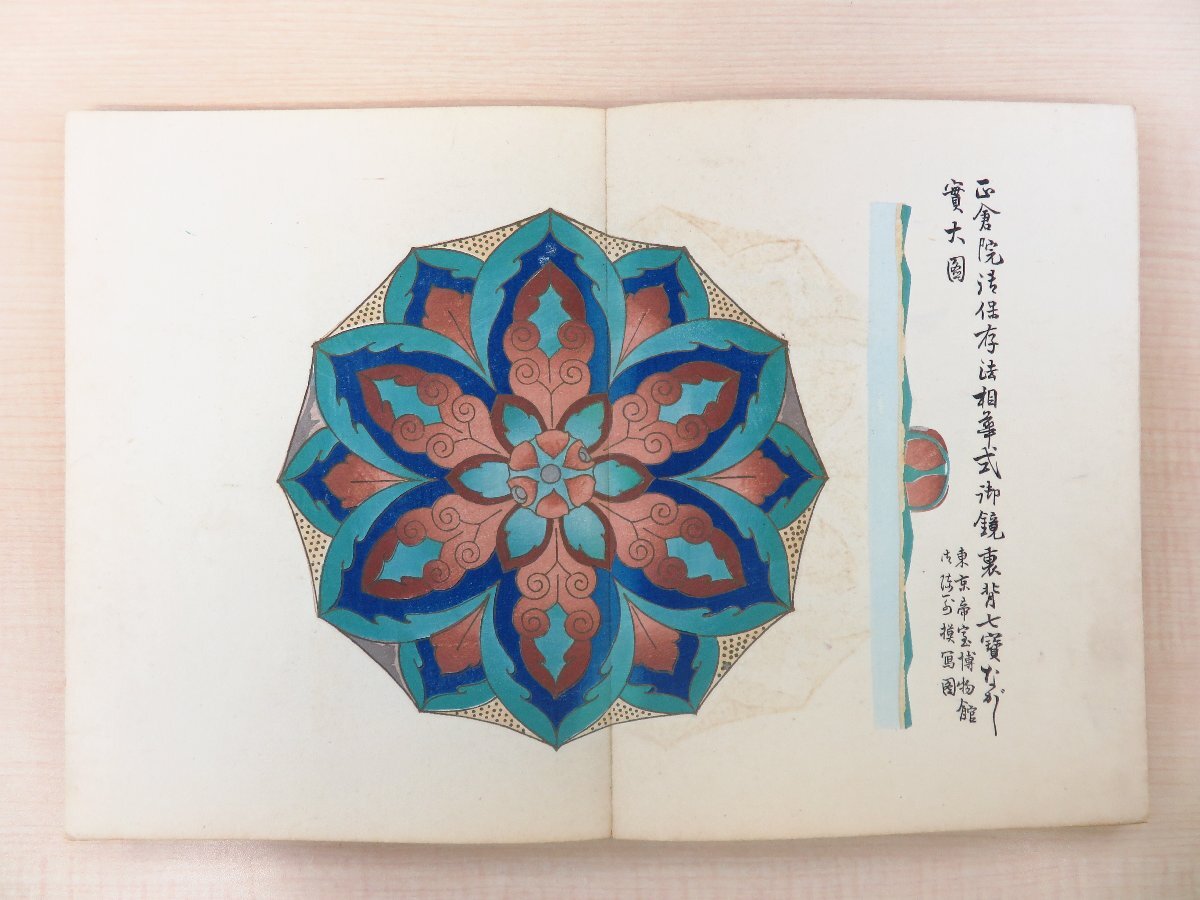 正倉院御保存法相華式御鏡裏背七寳ながし
實大圖
東京帝室博物館
御陳列摸寫圖